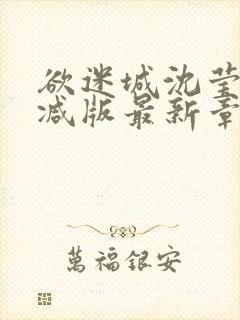 欲迷城沈莹
减版最新章
萬福銀安